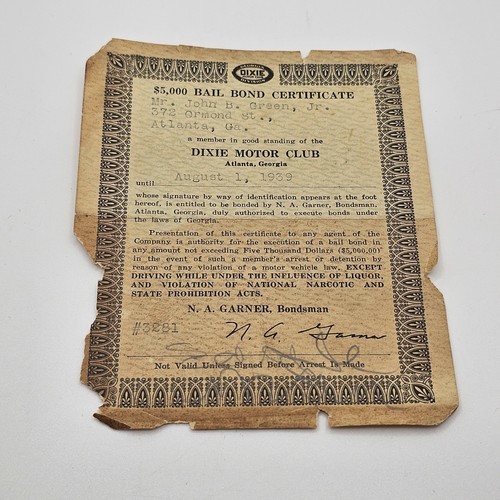 DIXIE
$5,000 BAIL BOND CERTIFICATE
Mr. John B. Green, Jr.
372 Ormond St.,
Atlanta, Ga.
a member in good standing of the
DIXIE MOTOR CLUB
Atlanta, Georgia
August 1, 1939
until
whose signature by way of identification appears at the foot
hereof, is entitled to be bonded by N. A. Garner, Bondsman,
Atlanta, Georgia, duly authorized to execute bonds under
the laws of Georgia.
Presentation of this certificate to any agent of the
Company is authority for the execution of a bail bond in
any amount not exceeding Five Thousand Dollars ($5,000.00)
in the event of such a member's arrest or detention by
reason of any violation of a motor vehicle law, EXCEPT
DRIVING WHILE UNDER THE INFLUENCE OF LIQUOR,
AND VIOLATION OF NATIONAL NARCOTIC AND
STATE PROHIBITION ACTS.
N. A. GARNER, Bondsman
#3281 N. A. Garner
Not Valid Unless Signed Before Arrest Is Made